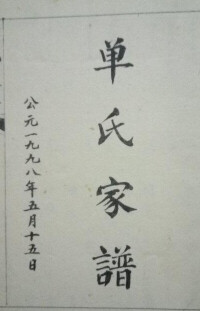 单氏家譜
公元一九九八年五月十五日